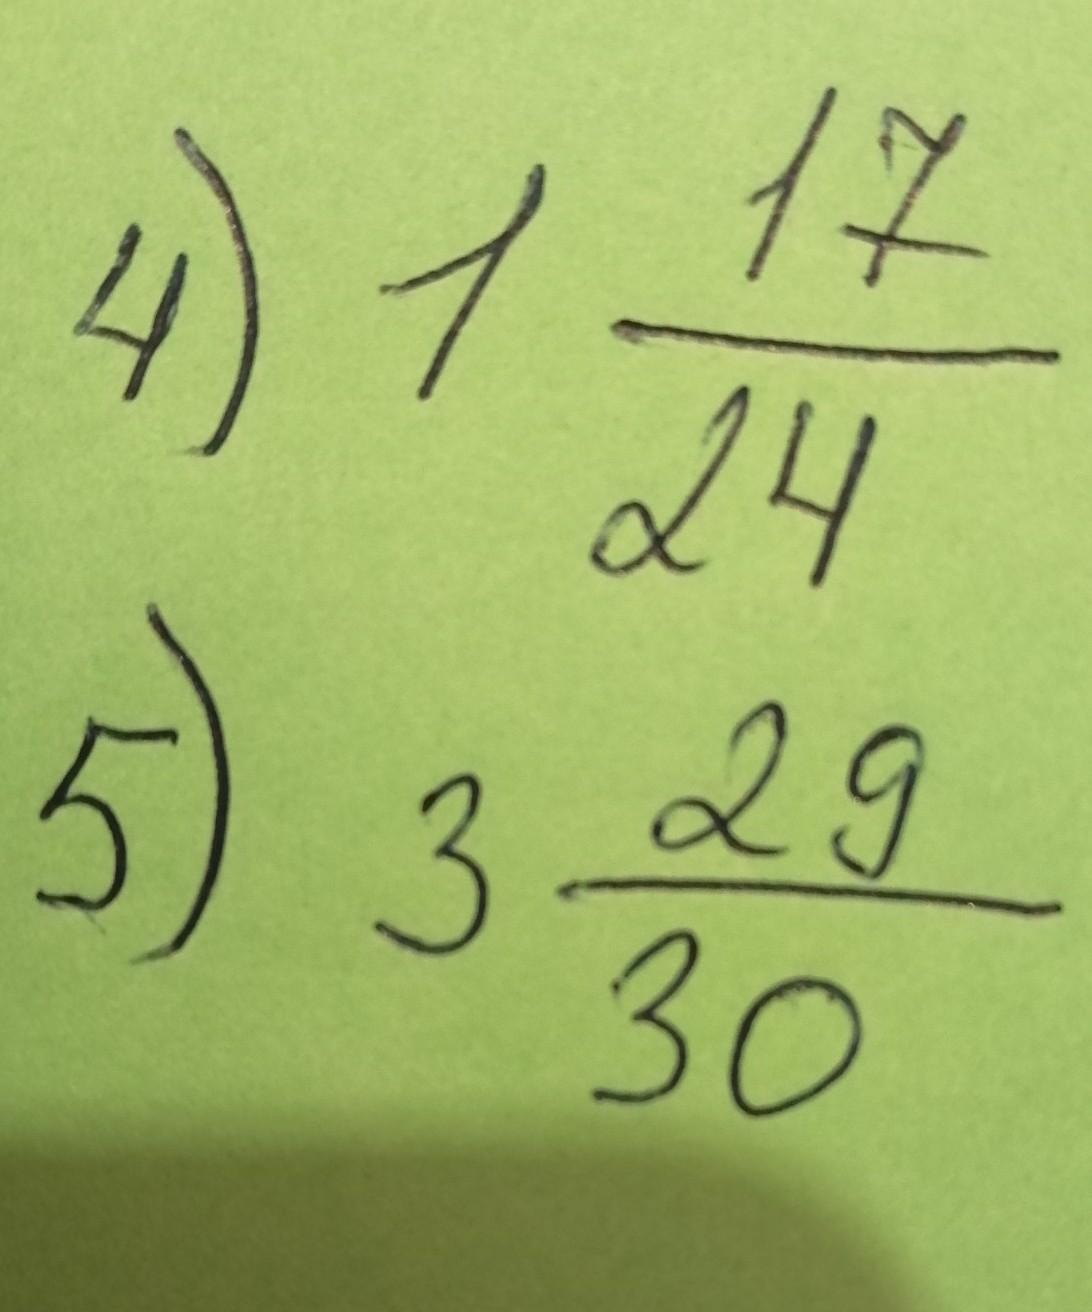 4) 1 17/24
5) 3 29/30